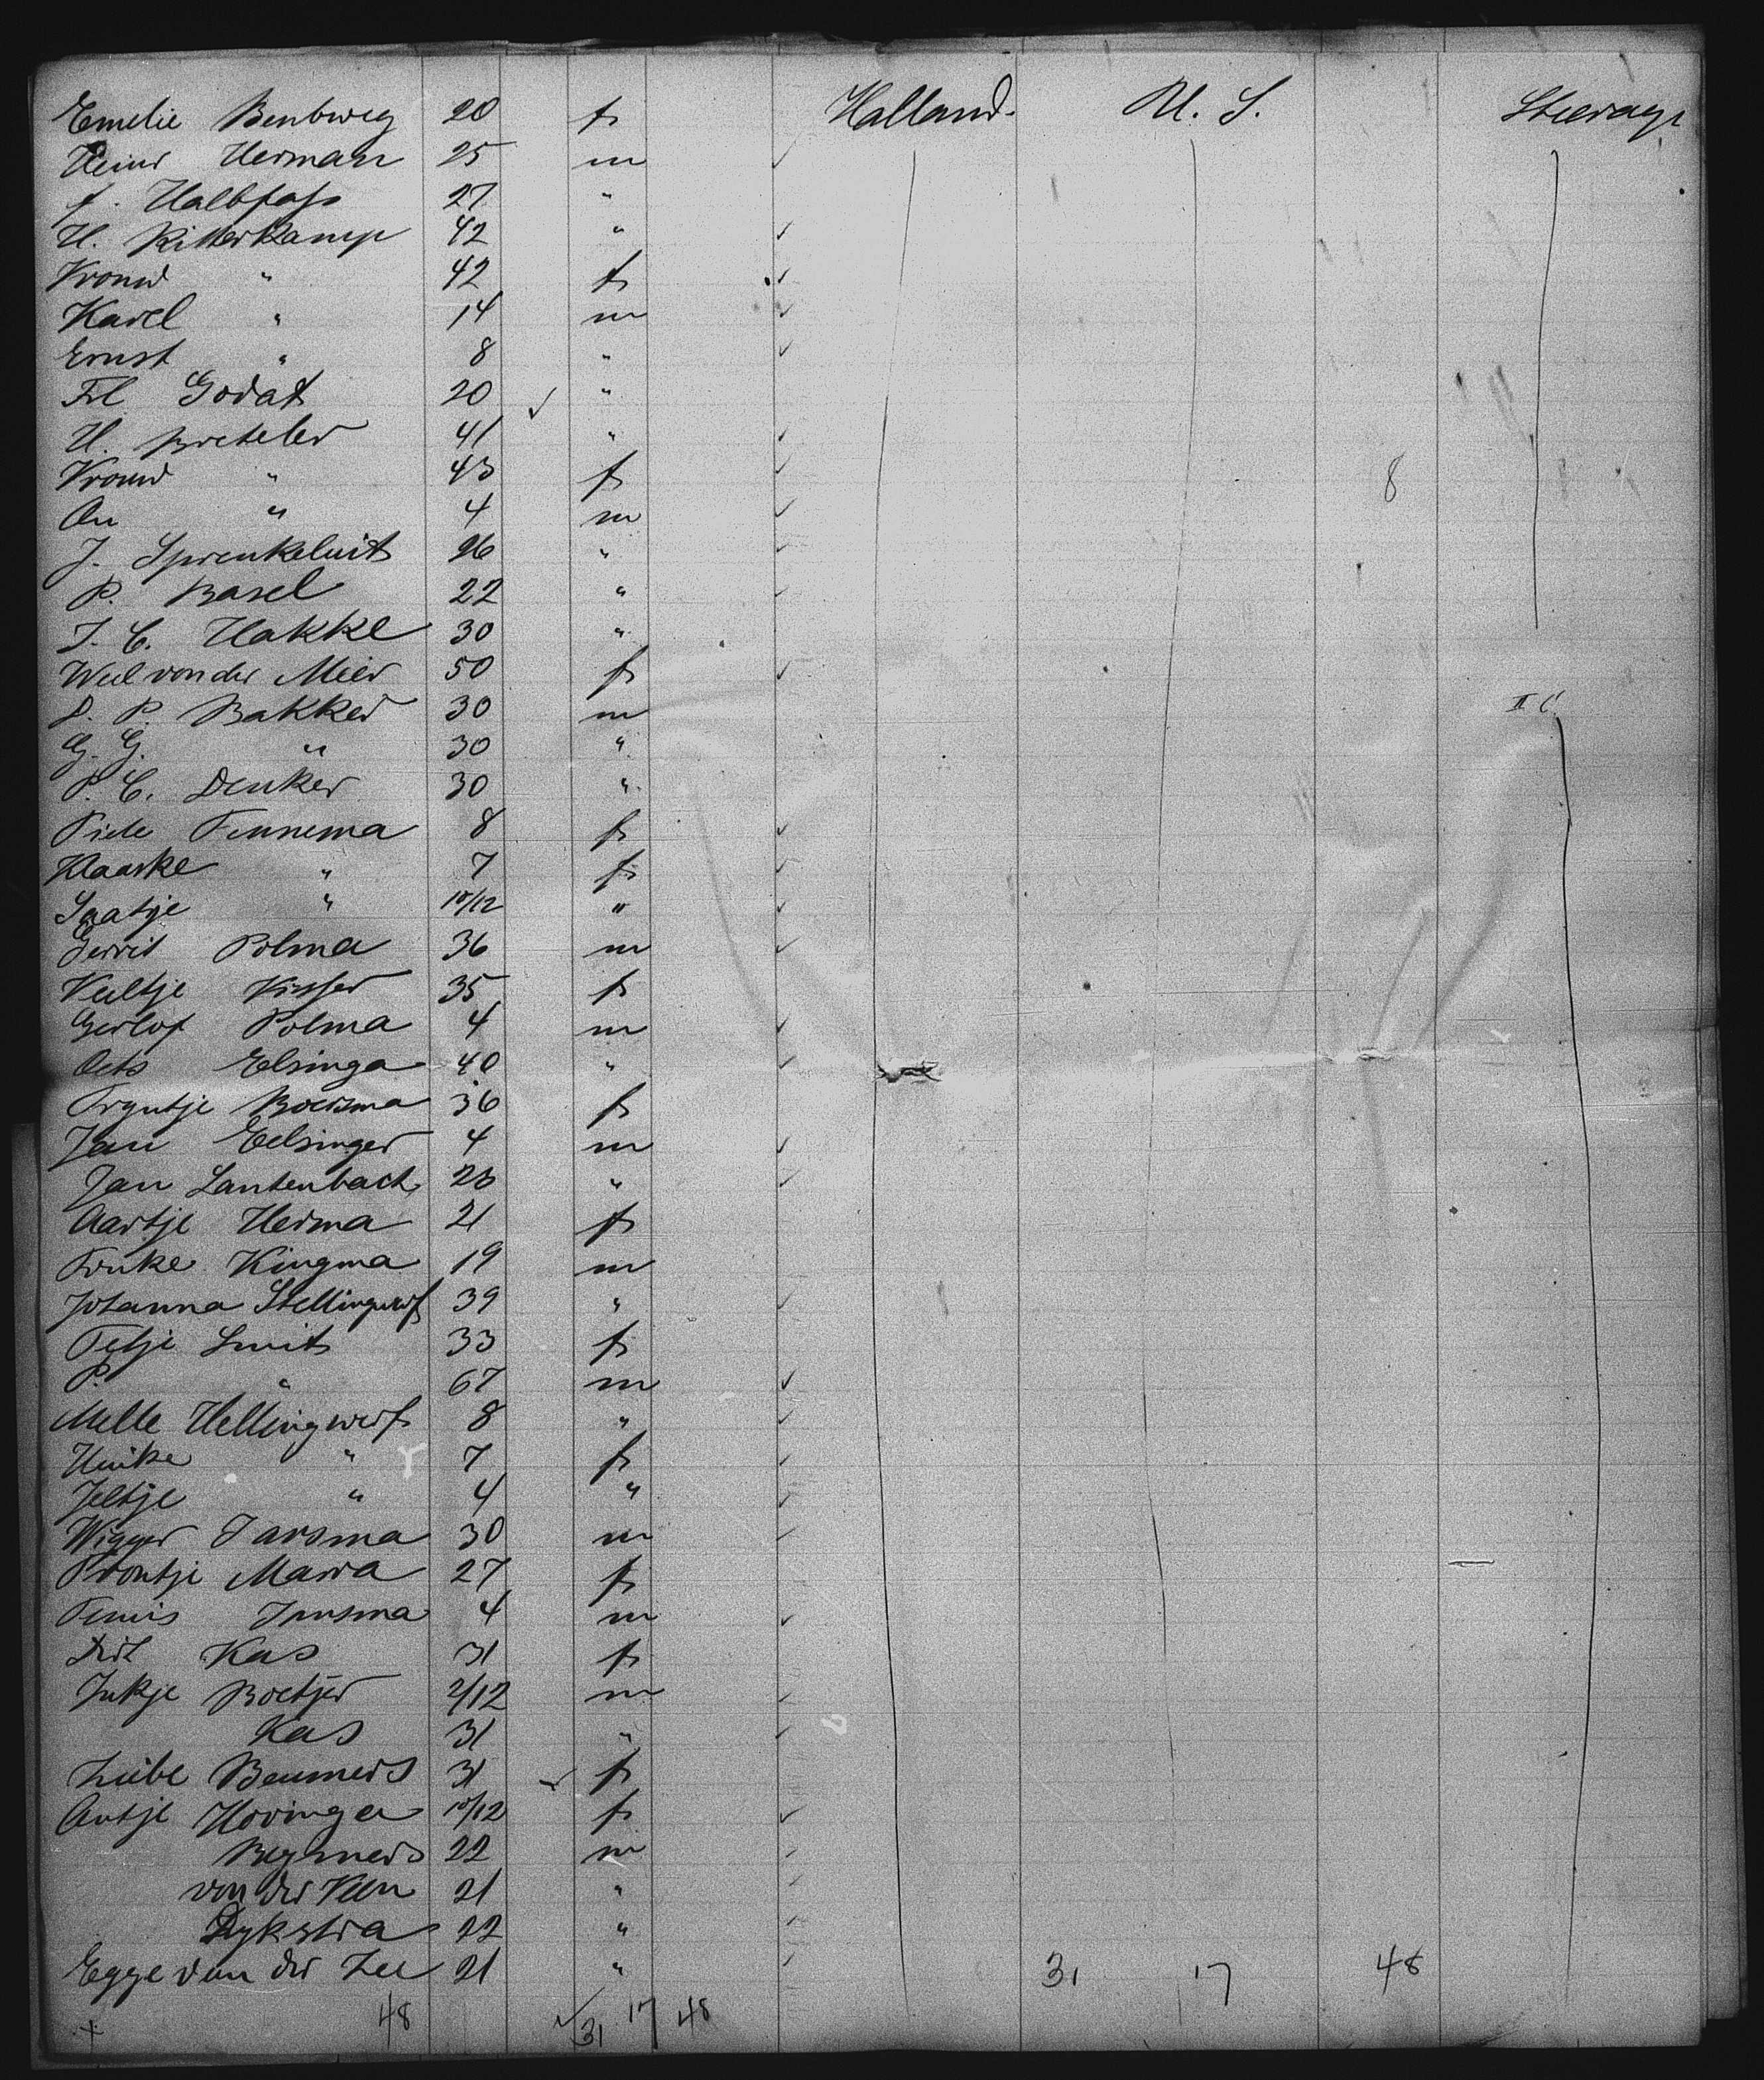 Emelie Benbweg 20 f Holland. U. S. Steerage
Heinr Herman 25 m
f. Halbfass 27 "
H. Ritterkamp 42 "
Vrouw " 42 f
Karel " 14 m
Ernst " 8 "
Frl Godat 20 "
H. Breteler 41 "
Vrouw " 43 f 8
An " 4 m
J. Sprenkeluit 26 "
P. Basel 22 "
J. C. Hakke 30 "
Weel von der Meer 50 f
D. P. Bakker 30 m II C.
G. G. " 30 "
P. C. Denker 30 "
Piele Tennema 8 f
Klaaske " 7 f
Saatje " 10/12 "
Gerrit Polma 36 m
Veeltje Visser 35 f
Gerlof Polma 4 m
Oets Elsinga 40 "
Tryntje Boersma 36 f
Jan Eelsinger 4 m
Jan Lautenbach 26 "
Aartje Herma 21 f
Fouke Kingma 19 m
Johanna Stellingwerf 39 "
Tetje Smits 33 f
P. " 67 m
Melle Hellingwerf 8 "
Huike " 7 f
Jeltje " 4 "
Wigger Jarsma 30 m
Prontje Marra 27 f
Teunis Jansma 4 m
Dirk Kas 31 f
Jukje Boetjer 2/12 m
Kas 31 "
Lübe Beumers 31 f
Antje Hovinger 10/12 f
Beymers 22 m
von der Veen 21 "
Dykstra 22 "
Egge van der Zee 21 " 31 17 48
+ 48 31 17 48